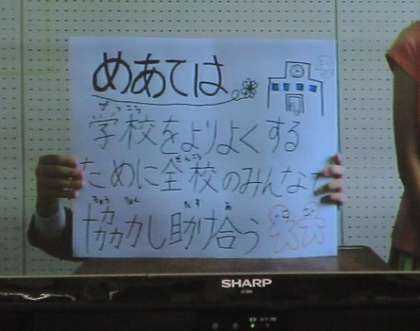 めあては
がっこう
学校をよりよくする
ぜんこう
ために全校のみんなで
きょうりょく たす あ
協力し助け合う
SHARP